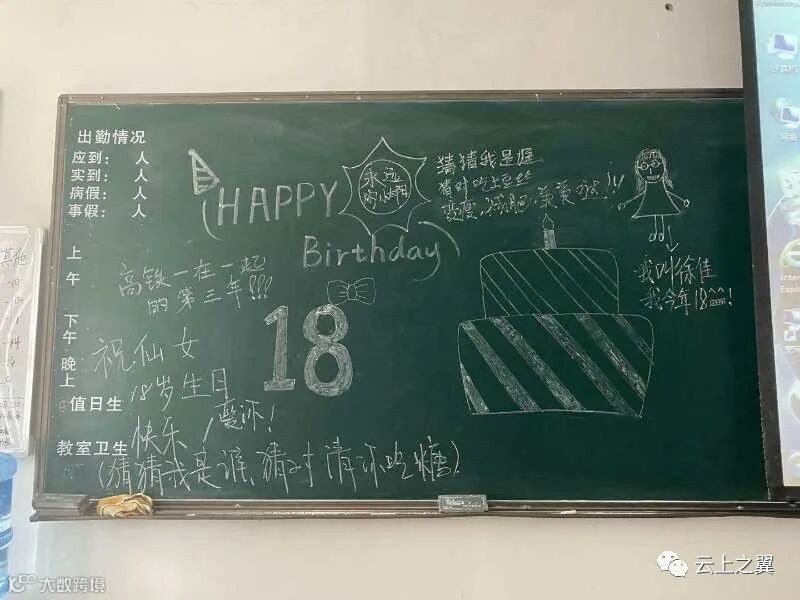 出勤情况
应到： 人
实到： 人
病假： 人
事假： 人
上午
下午
晚上
值日生
教室卫生
HAPPY
Birthday
永远
猜猜我是谁
猜对吃土豆丝
我叫徐佳
我今年18
高铁一在一起
的第三年!!!
18
祝仙女
18岁生日
快乐
爱你!
(猜猜我是谁,猜对请你吃糖)
其他
云上之翼
大数跨境